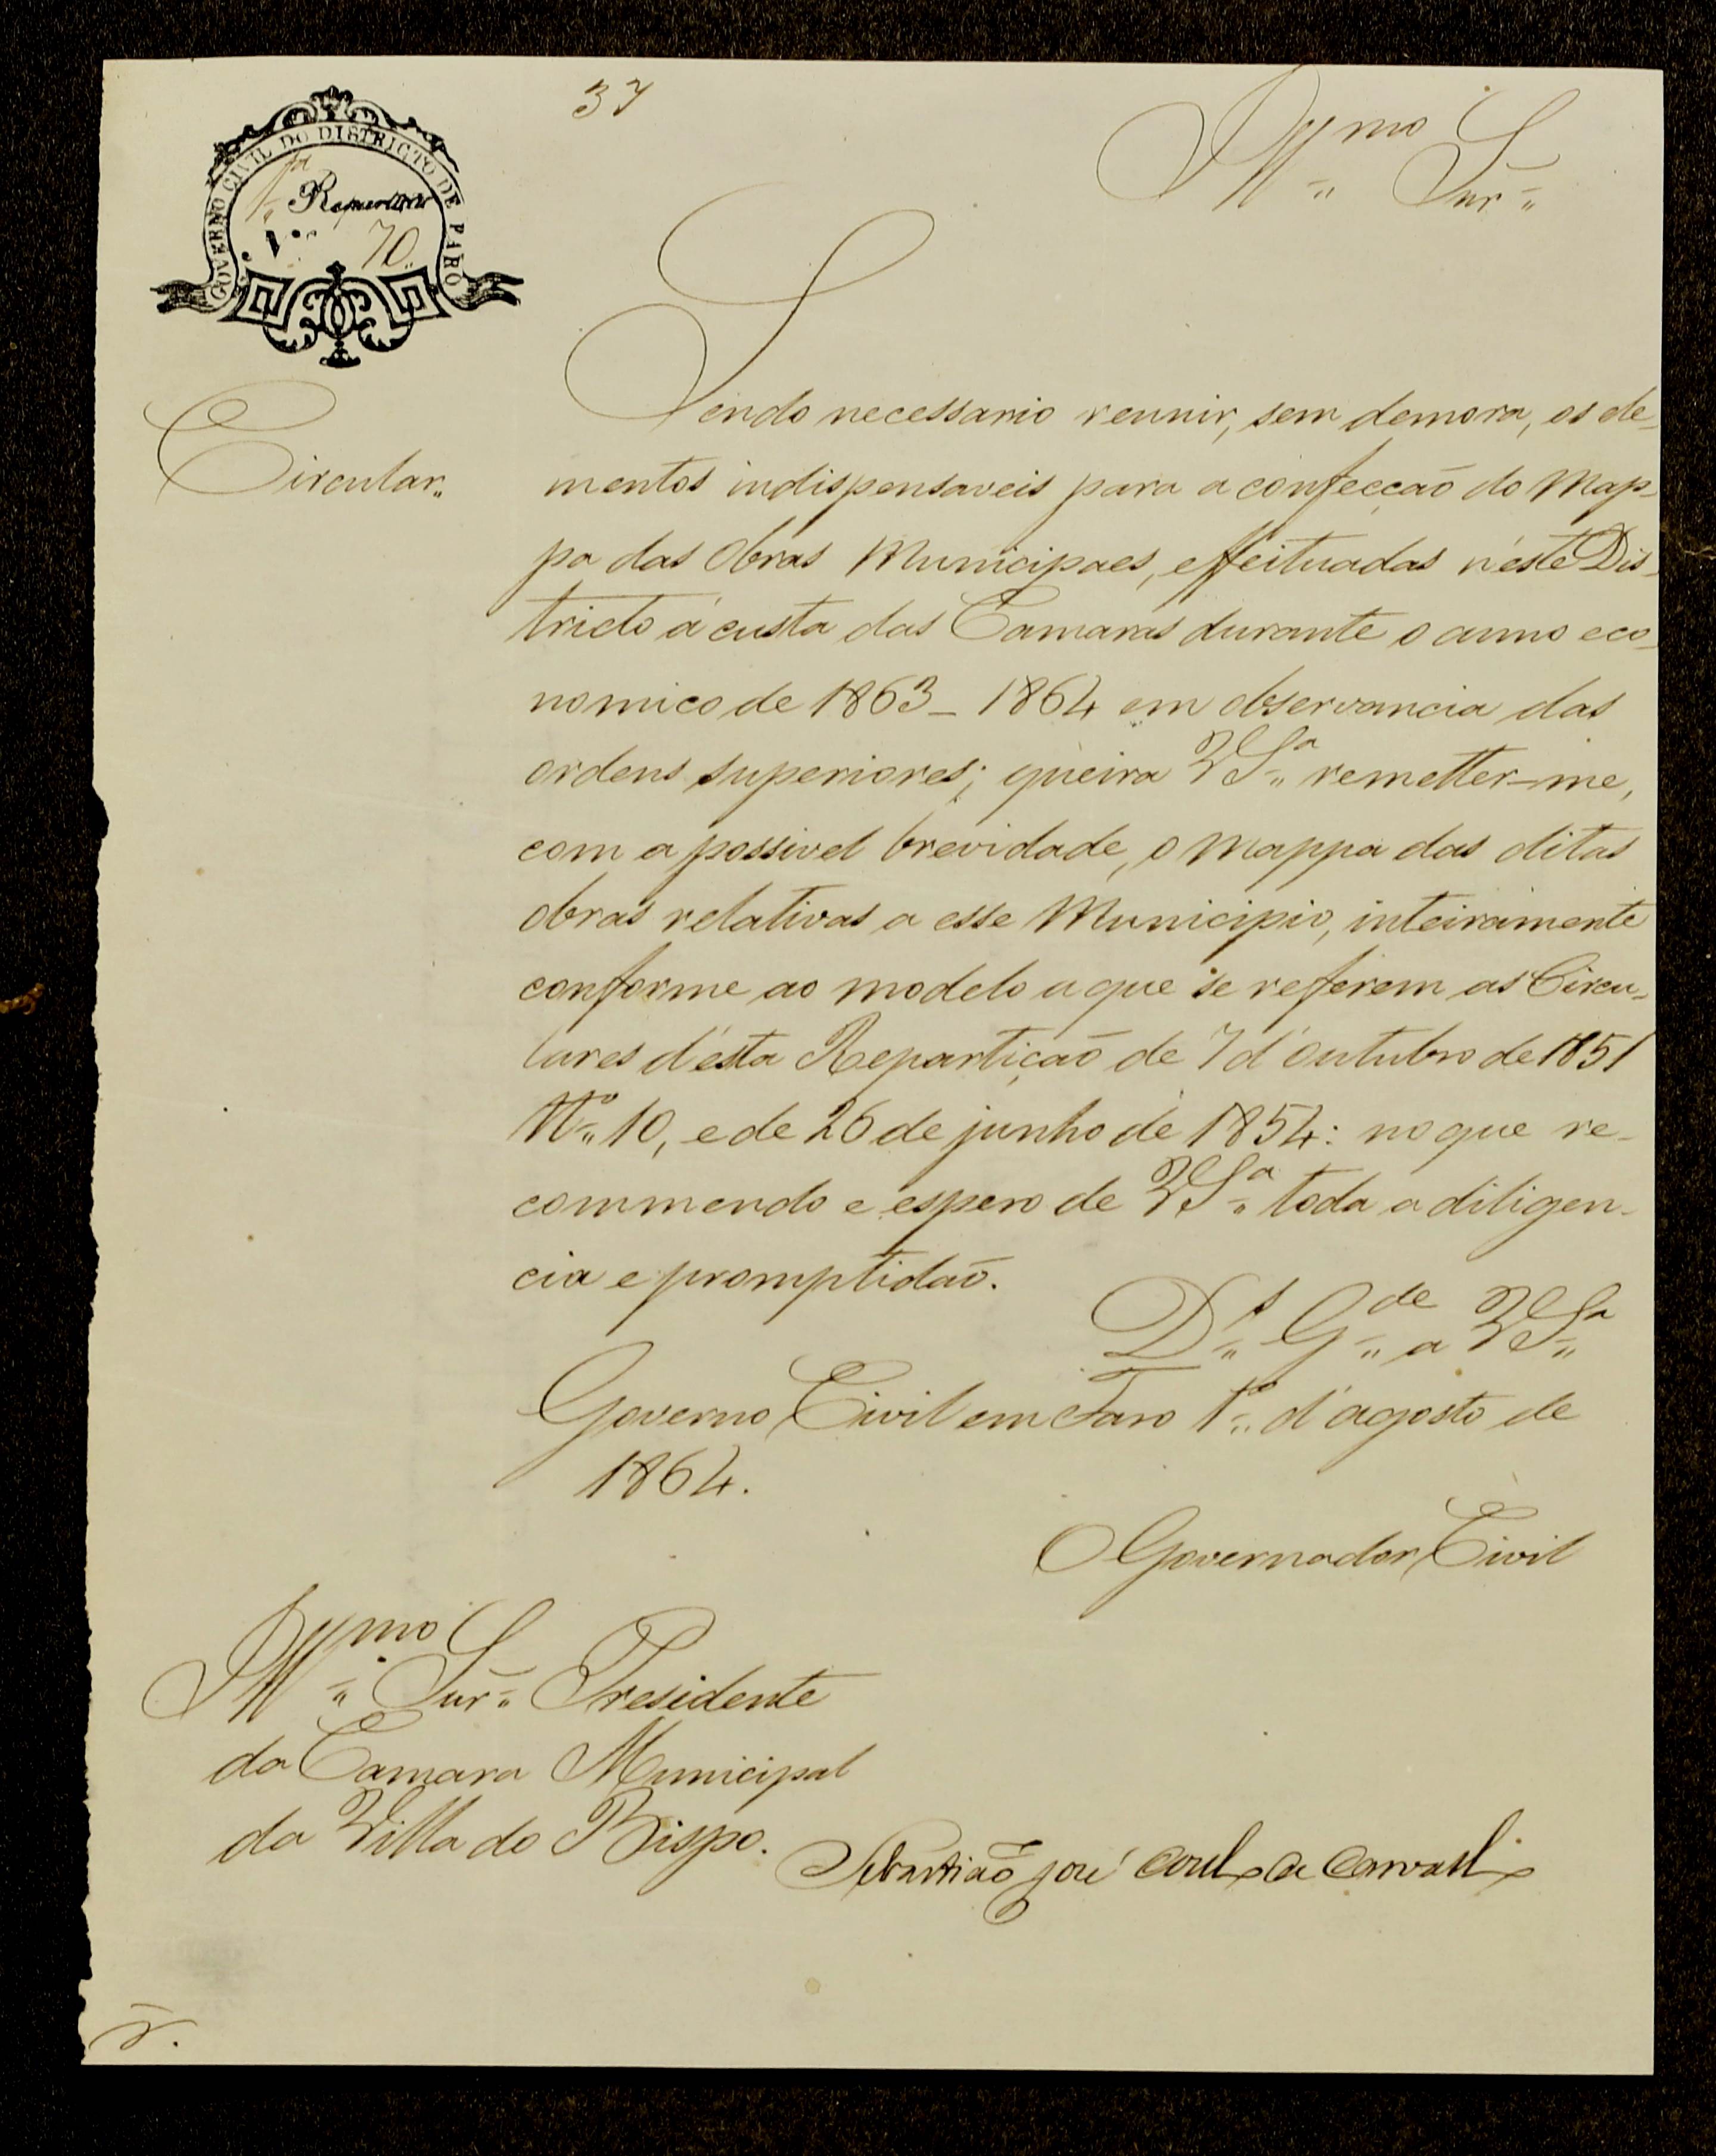 37
Illmo Snr
GOVERNO CIVIL DO DISTRICTO DE FARO
1.a Repartição
N.o 70
Circular
Sendo necessario reunir, sem demora, os ele-
mentos indispensaveis para a confecção do Map-
pa das Obras Municipaes, effeituadas n'este Dis-
tricto á custa das Camaras durante o anno eco-
nomico de 1863-1864 em observancia das
ordens superiores; queira VSa remetter-me,
com a possivel brevidade, o Mappa das ditas
obras relativas a esse Municipio, inteiramente
conforme ao modelo a que se referem as Circu-
lares d'esta Repartição de 7 d'Outubro de 1851
No 10, e de 26 de junho de 1854: no que re-
commendo e espero de VSa toda a diligen-
cia e promptidão.
Ds Gde a VSa
Governo Civil em Faro 1o d'agosto de
1864.
O Governador Civil
Illmo Snr Presidente
da Camara Municipal
da Villa do Bispo.
Sebastião José de Carvalho